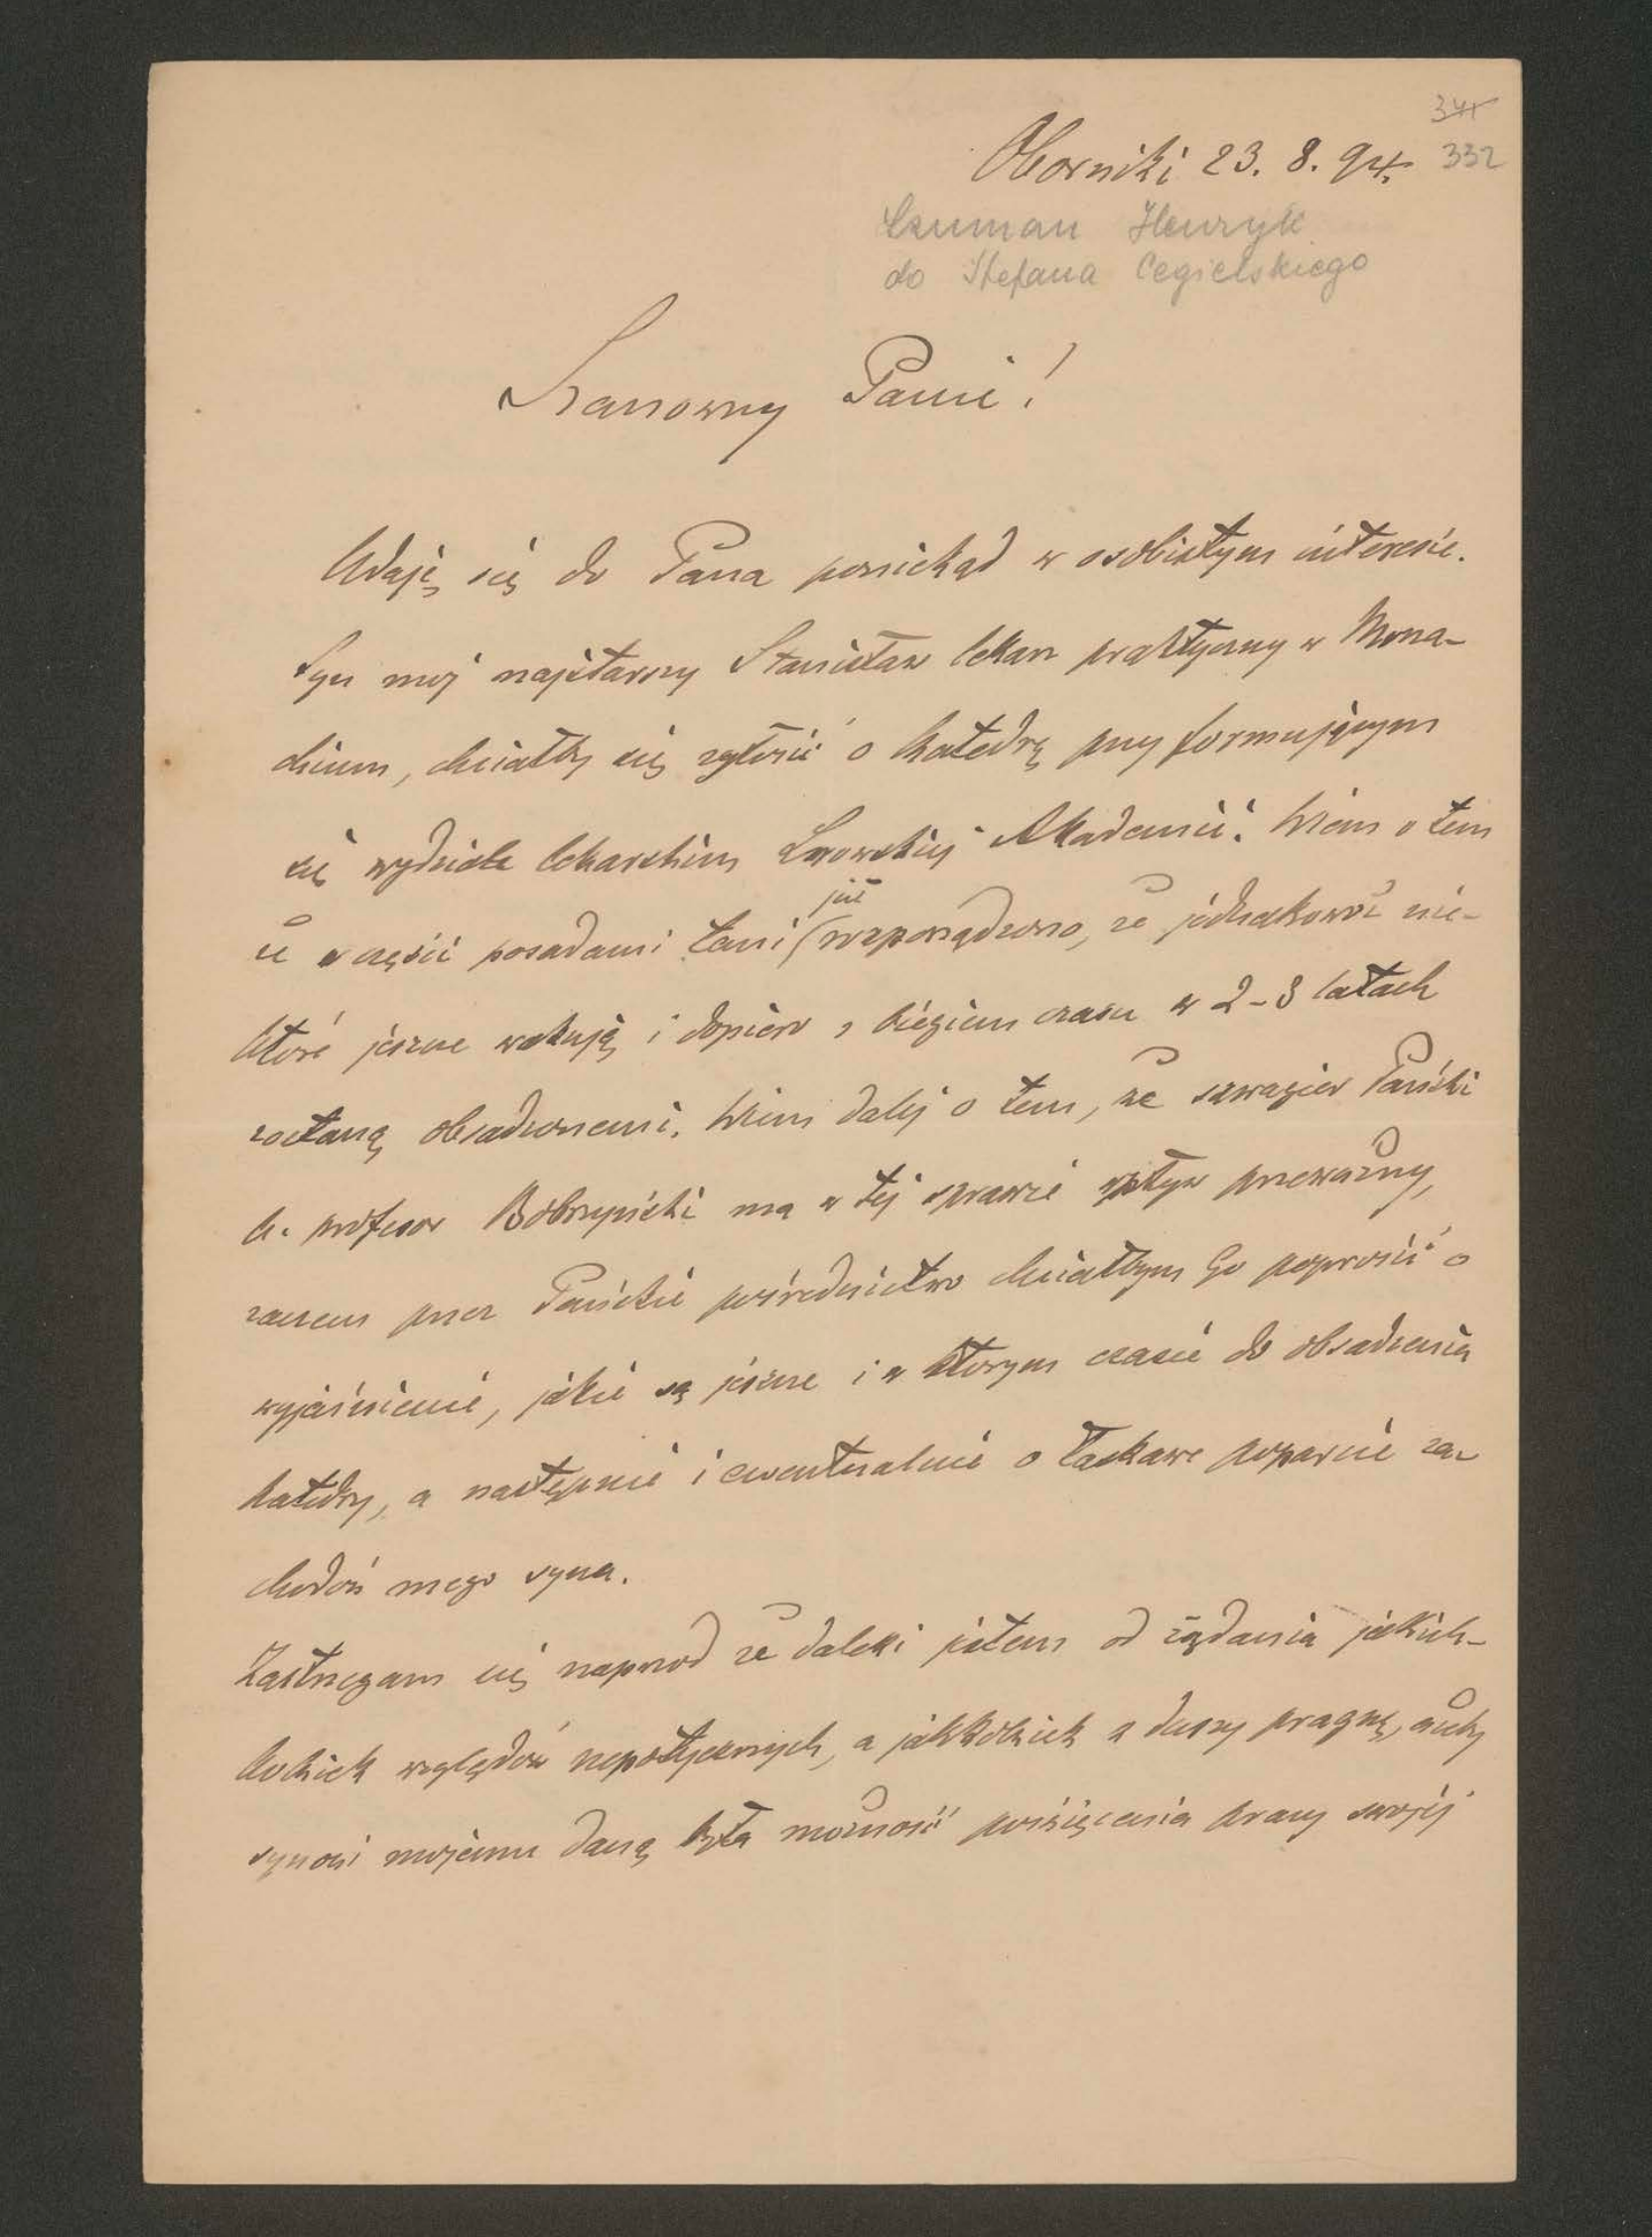 341
332
Oborniki 23. 8. 94.
Szuman Henryk
do Stefana Cegielskiego
Szanowny Panie!
Udaję się do Pana poniekąd w osobistym interesie.
Syn mój najstarszy Stanisław lekarz praktyczny w Mona-
chium, chciałby się zgłosić o katedrę przy formującym
się wydziale lekarskim Lwowskiej Akademii. Wiem o tem
że w części posadami temi już rozporządzono, że jednakowoż nie-
które jeszcze wakują i dopiero z biegiem czasu w 2-3 latach
zostaną obsadzonemi. Wiem dalej o tem, że szwagier Pański
h. profesor Bobrzyński ma w tej sprawie wpływ przeważny,
zaczem przez Pańskie pośrednictwo chciałbym Go poprosić o
wyjaśnienie, jakie są jeszcze i w którym czasie do obsadzenia
katedry, a następnie i ewentualnie o łaskawe poparcie za-
chodów mego syna.
Zastrzegam się naprzód że daleki jestem od żądania jakich-
kolwiek względów nepotycznych, a jakkolwiek z duszy pragnę, ażeby
synowi mojemu daną była możność poświęcenia pracy swojej